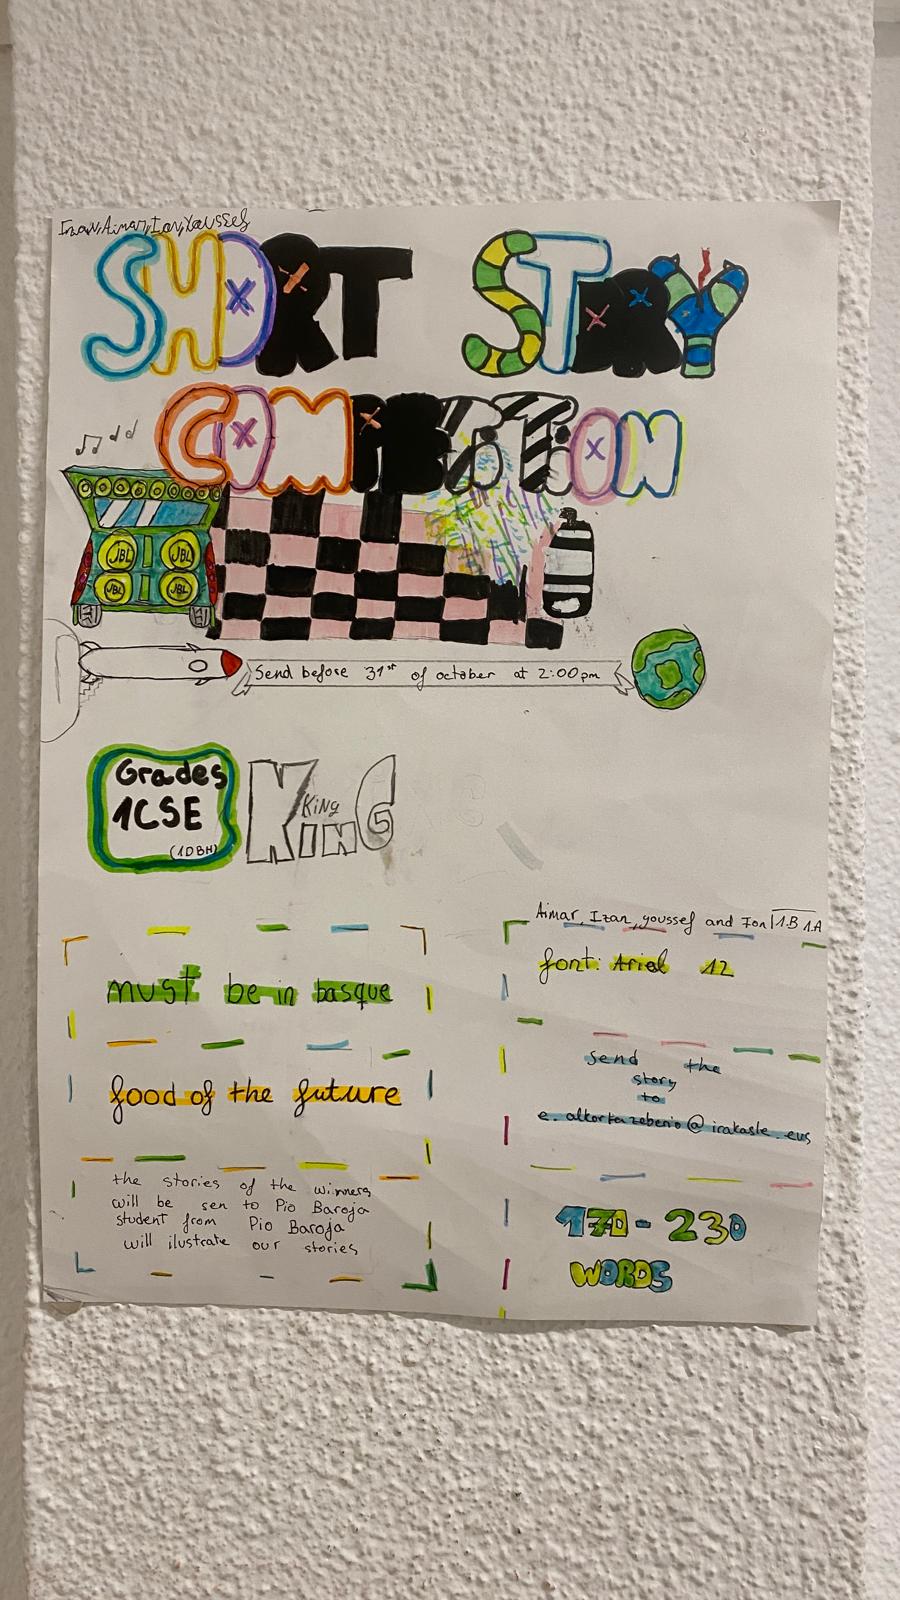 Izan, Aimar, Ion, Youssef
SHORT STORY
COMPETITION
JBL JBL
JBL JBL
Send before 31st of october at 2:00pm
Grades
1CSE
(1DBH)
KING
KING
Aimar, Izan, youssef and Ion 1.B 1.A
must be in basque
font: Arial 12
food of the future
Send the
story
to
e.alkortazeberio@irakasle.eus
the stories of the winners
will be sen to Pio Baroja
student from Pio Baroja
will ilustrate our stories
170-230
WORDS